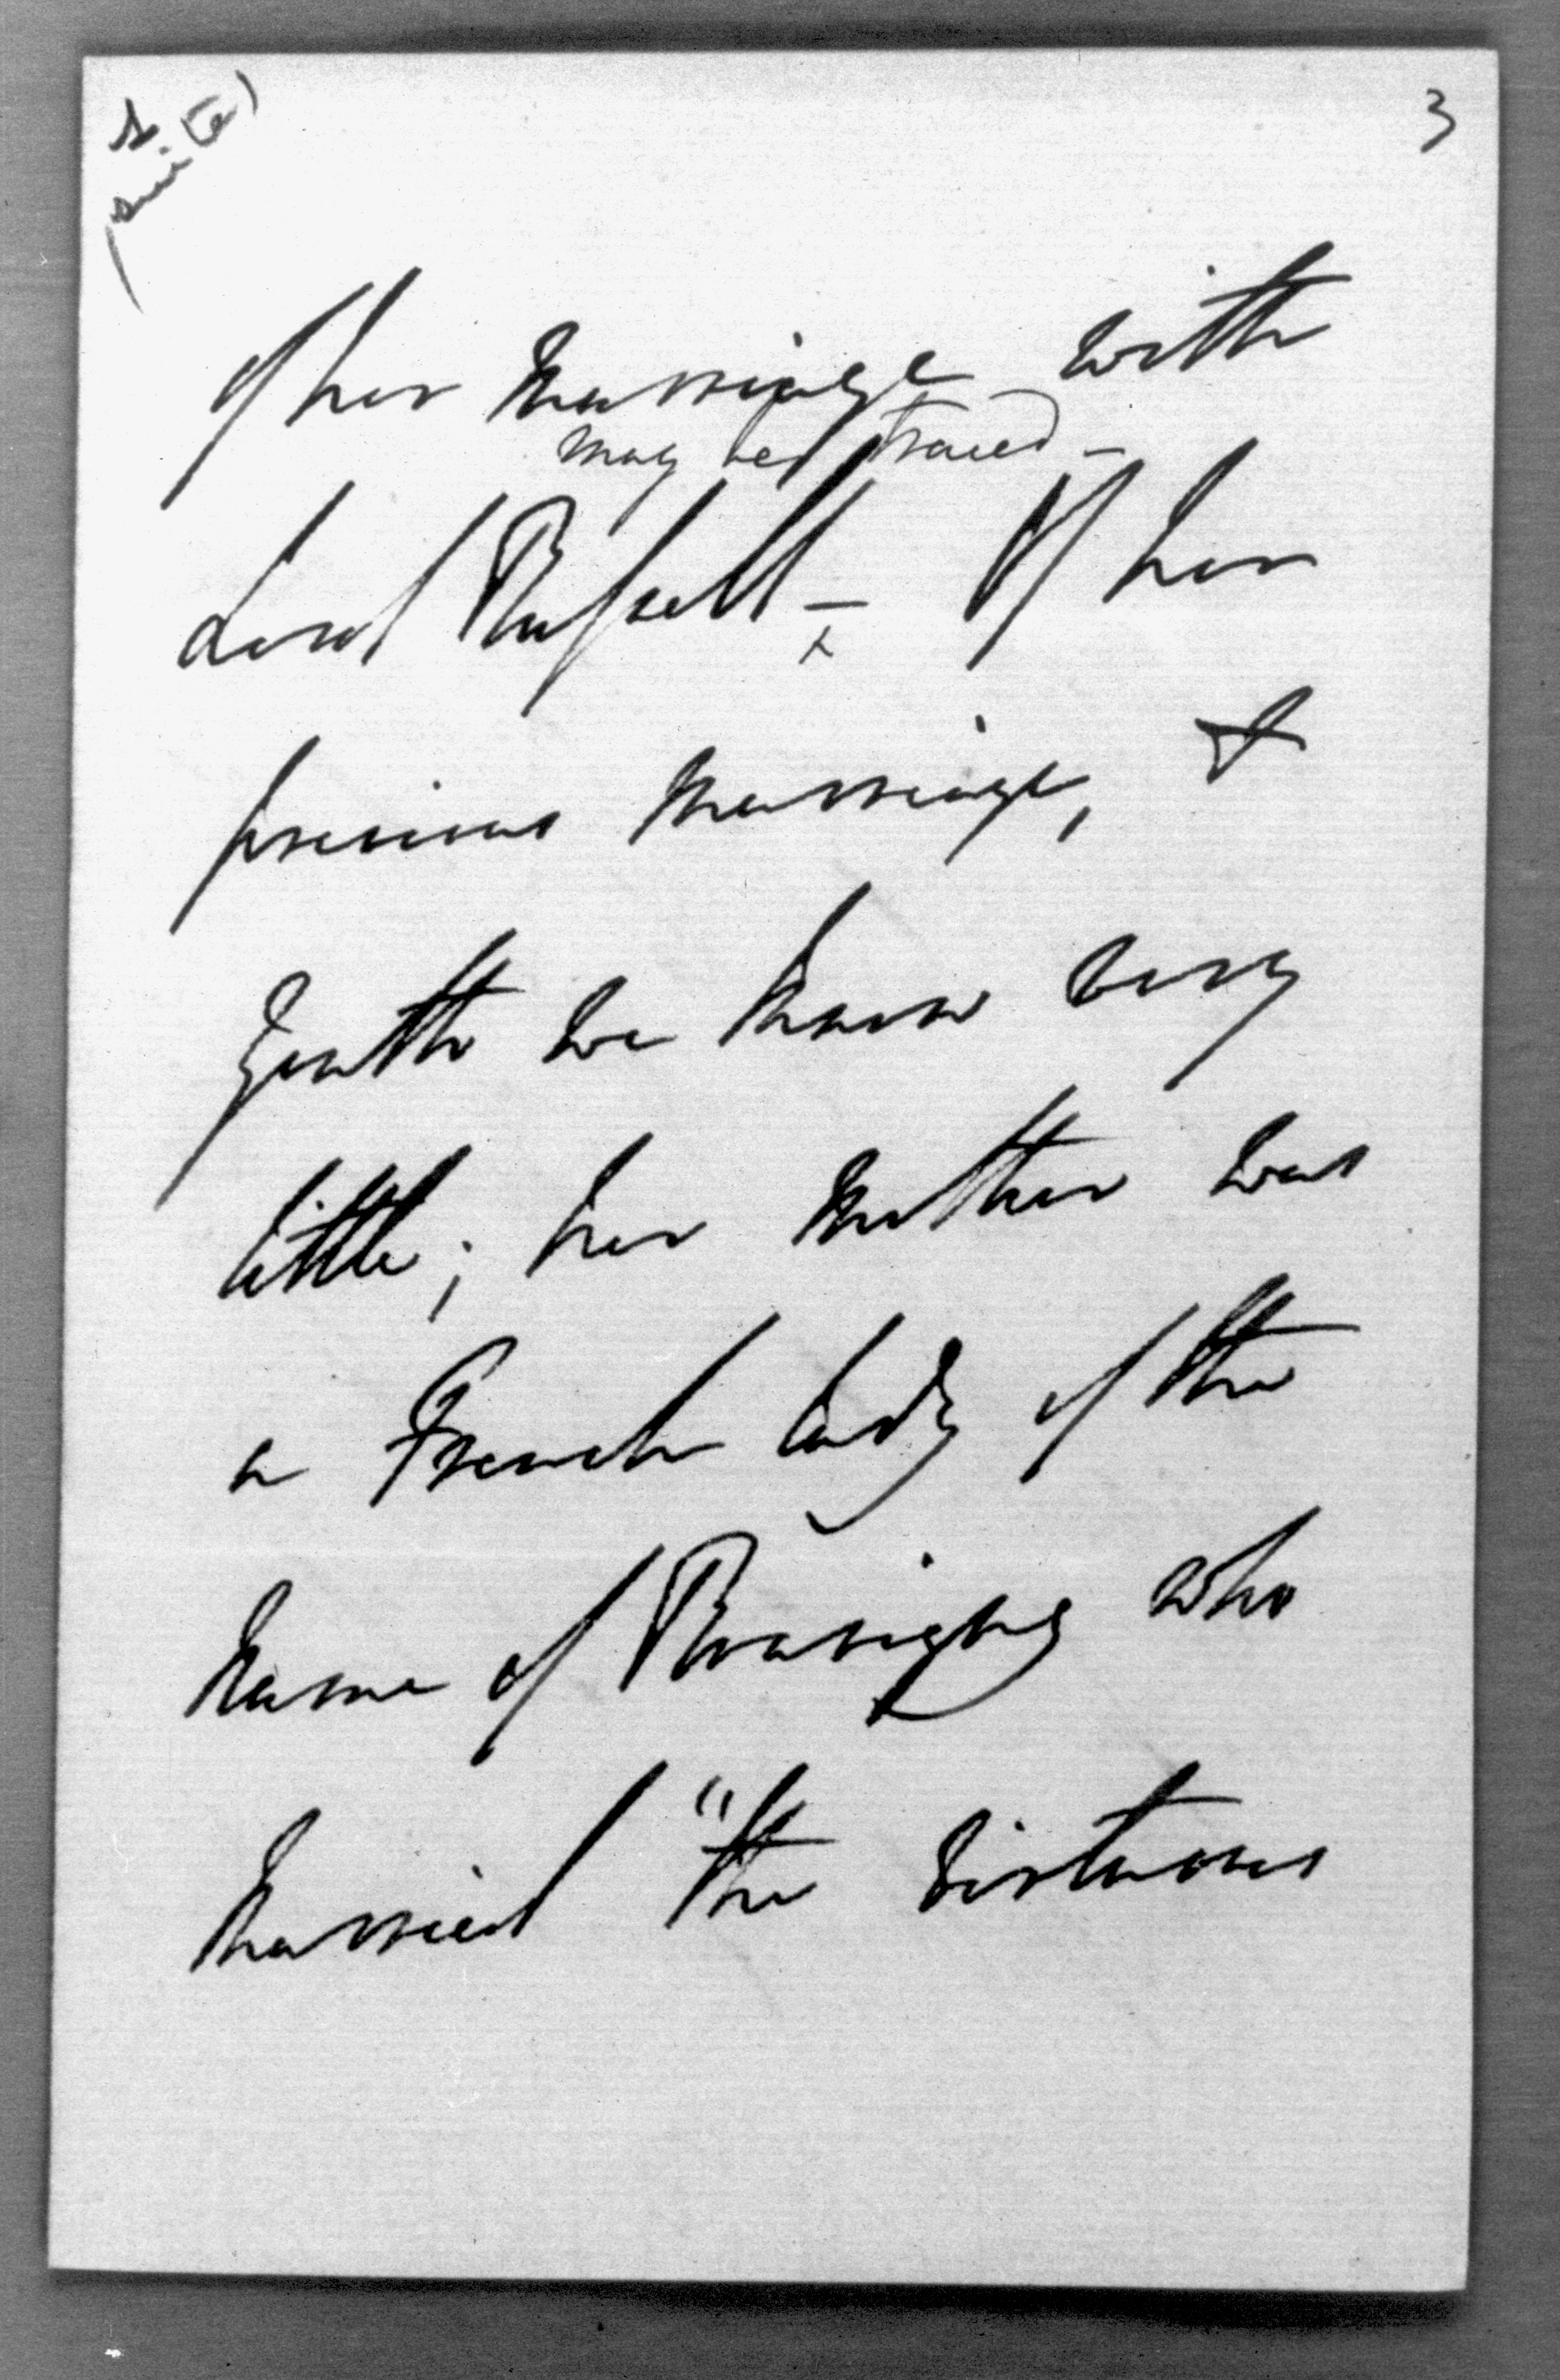 3
1
(suite)
of her marriage with
may be traced –
Lord Russell – Of her
previous marriage, &
youth we know very
little; her mother was
a French lady of the
name of Rouvigny who
married "the virtuous